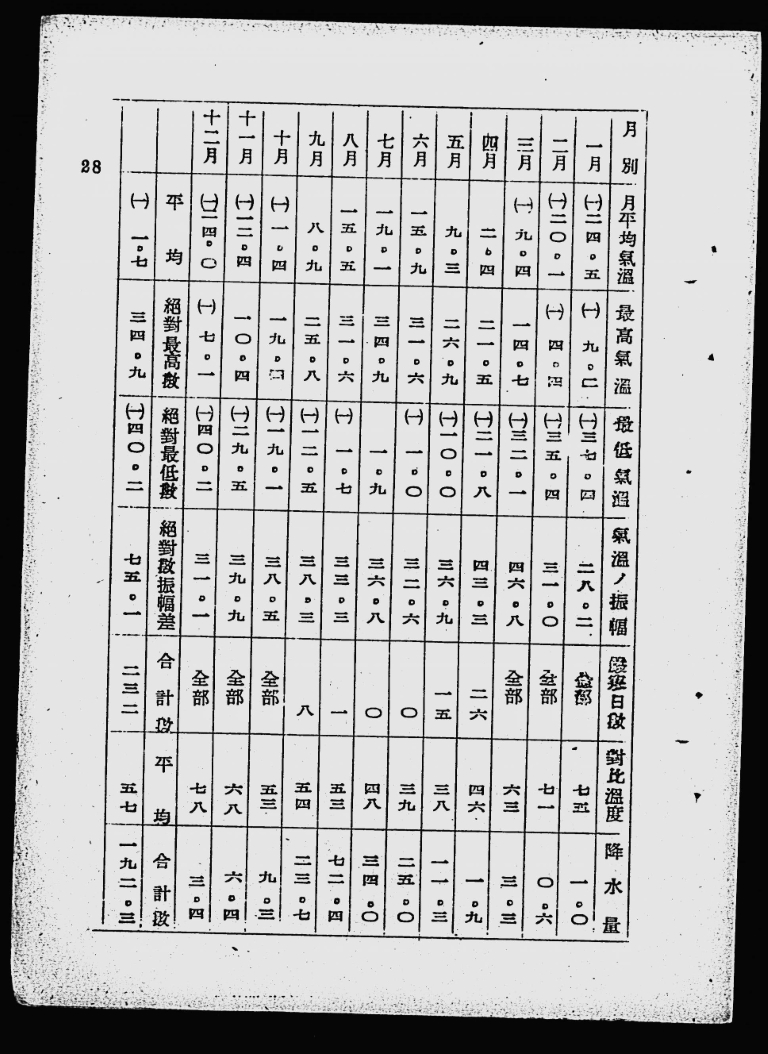 28
月別 月平均氣溫 最高氣溫 最低氣溫 氣溫ノ振幅 日數 對比溫度 降水量
一月 (一)二四。五 (一)九。二 (一)三七。四 二八。二 全部 七五 一。〇
二月 (一)二〇。一 (一)四。四 (一)三五。四 三一。〇 全部 七一 〇。六
三月 (一)九。四 一四。七 (一)三二。一 四六。八 全部 六三 三。三
四月 二。四 二一。五 (一)二一。八 四三。三 二六 四六 一。九
五月 九。三 二六。九 (一)一〇。〇 三六。九 一五 三八 一一。三
六月 一五。九 三一。六 (一)一。〇 三二。六 〇 三九 二五。〇
七月 一九。一 三四。九 一。九 三六。八 〇 四八 三四。〇
八月 一五。五 三一。六 (一)一。七 三三。三 一 五三 七二。四
九月 八。九 二五。八 (一)一二。五 三八。三 八 五四 二三。七
十月 (一)一。四 一九。四 (一)一九。一 三八。五 全部 五三 九。三
十一月 (一)一二。四 一〇。四 (一)二九。五 三九。九 全部 六八 六。四
十二月 (一)二四。〇 (一)七。一 (一)四〇。二 三一。一 全部 七八 三。四
平均 絕對最高數 絕對最低數 絕對數振幅差 合計數 平均 合計數
(一)一。七 三四。九 (一)四〇。二 七五。一 二三二 五七 一九二。三